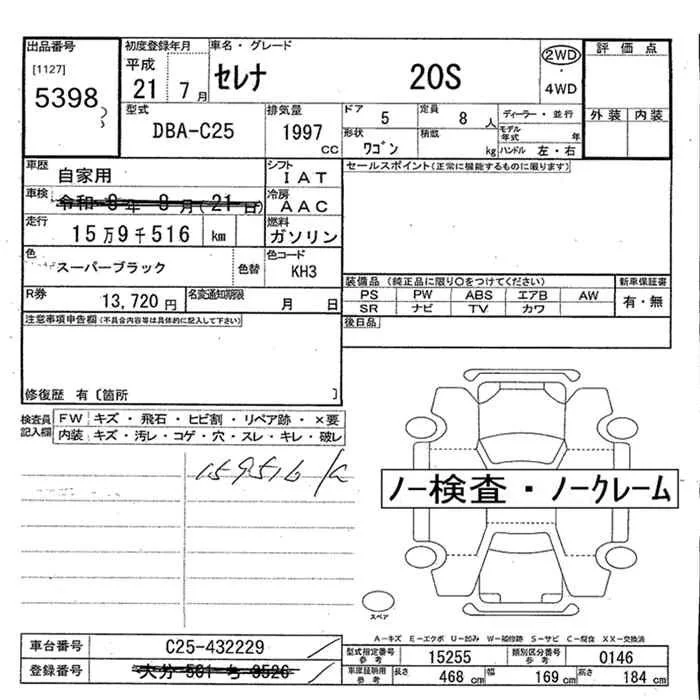 出品番号 初度登録年月 車名・グレード 2WD 評価点
[1127] 平成
5398 21 7月 セレナ 20S ・ 4WD
型式 排気量 ドア 5 定員 8人 ディーラー・並行 外装 内装
DBA-C25 1997cc 形状 ワゴン 積載 kg モデル年式 年
ハンドル 左・右
車歴 自家用 シフト IAT セールスポイント(正常に機能するものに限ります)
車検 令和 8年 8月(21日) 冷房 AAC
走行 15万9千516 km 燃料 ガソリン
色 スーパーブラック 色替 色コード KH3
装備品(純正品に限り〇をつけてください) 新車保証書
R券 13,720円 名変通知期限 月 日 PS PW ABS エアB AW 有・無
SR ナビ TV カワ
注意事項申告欄(不具合内容等は具体的に記入して下さい) 後日品
修復歴 有〔箇所 〕
検査員記入欄 FW キズ・飛石・ヒビ割・リペア跡・×要
内装 キズ・汚レ・コゲ・穴・スレ・キレ・破レ
159516 K
ノー検査・ノークレーム
スペア
A-キズ E-エクボ U-凹み W-補修跡 S-サビ C-腐食 XX-交換済
車台番号 C25-432229 型式指定番号 参考 15255 類別区分番号 参考 0146
登録番号 大分 501 ち 3526 車庫証明用 参考 長さ 468 cm 幅 169 cm 高さ 184 cm